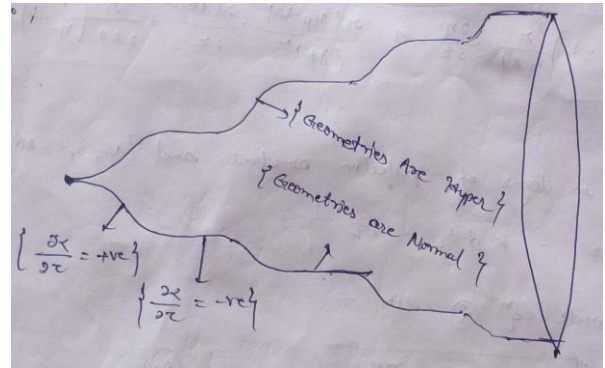 {Geometries Are Hyper}
{Geometries are Normal}
= +ve}
= -ve}